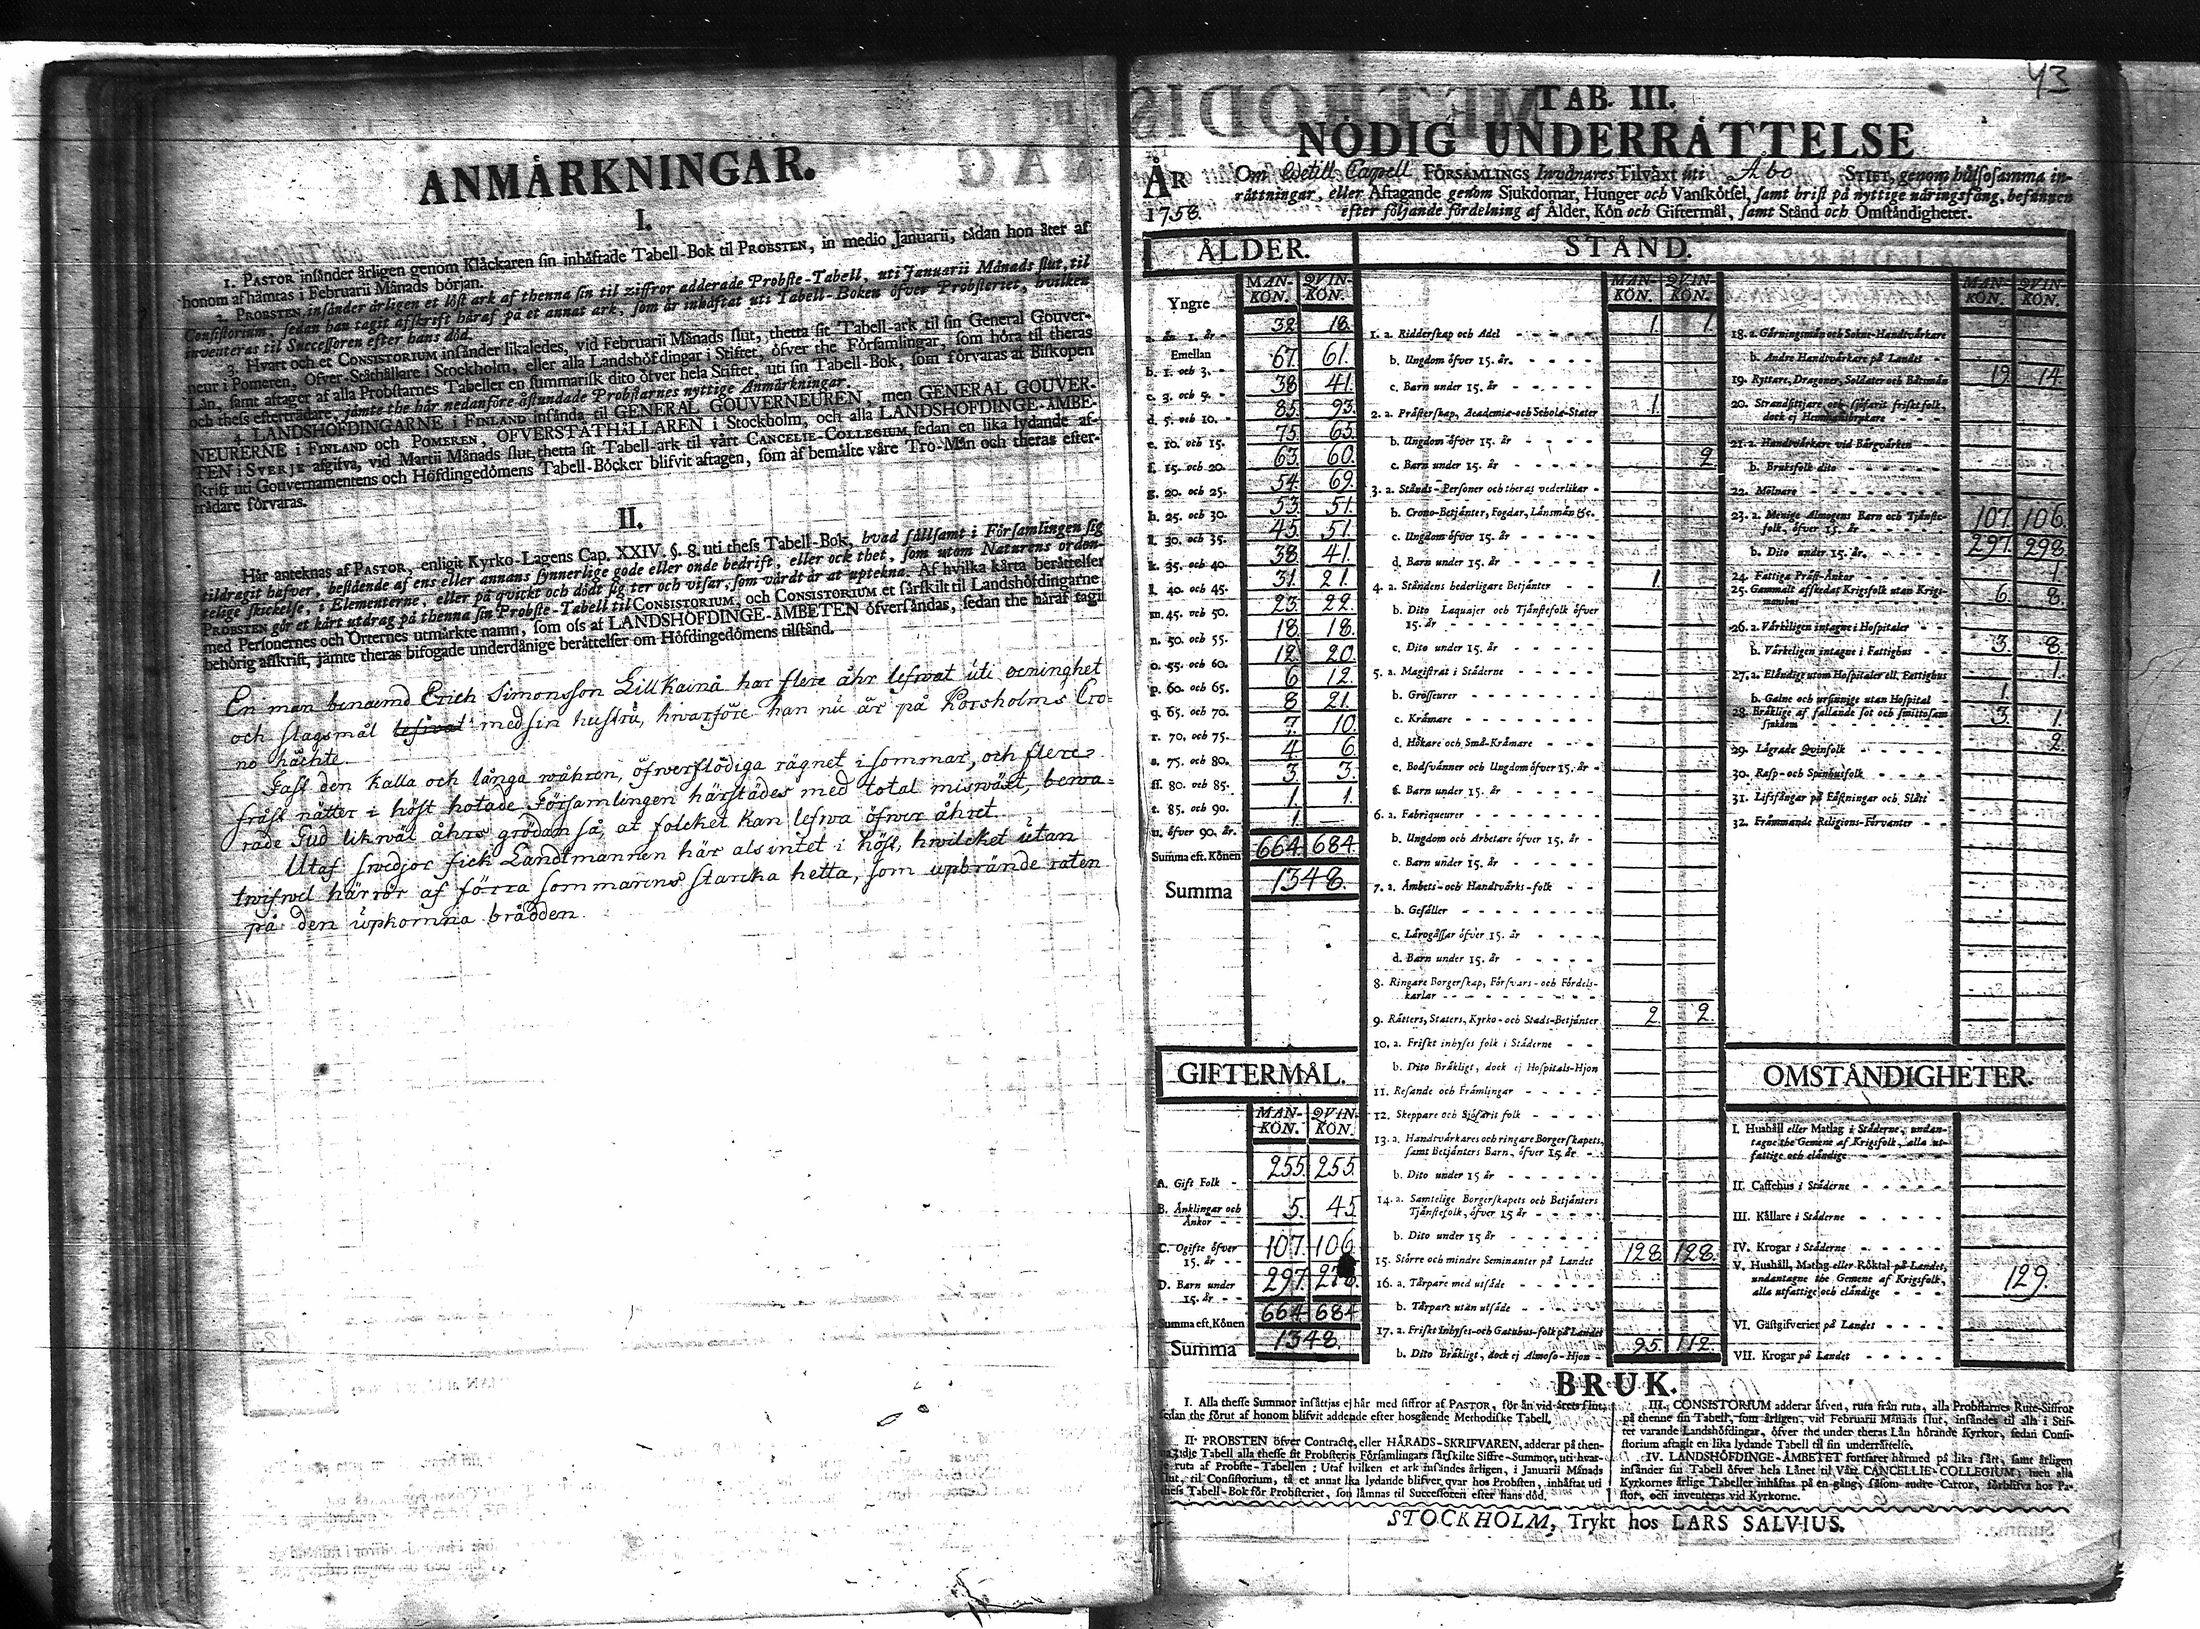 ANMÅRKNINGAR.
I.
1. PASTOR insånder årligen genom Klåckaren sin inhåftade Tabell-Bok til PROBSTEN, in medio Januarii, sådan hon åter af
honom afhåmtas i Februarii Månads början.
2. PROBSTEN, insånder årligen et löst ark af thenna sin til ziffror adderade Probste-Tabell, uti Januarii Månads slut, til
Consistorium, sedan han tagit afskrift håraf på et annat ark, som år inhåftat uti Tabell-Boken öfver Probsteriet, hvilken
inventeras til Successoren efter hans död.
3. Hvart och et CONSISTORIUM insånder likaledes, vid Februarii Månads slut, thetta sit Tabell-ark til sin General Gouver-
neur i Pomeren, Öfver-Ståthållare i Stockholm, eller alla Landshöfdingar i Stiftet, öfver the Församlingar, som höra til theras
Lån, samt aftager af alla Probstarnes Tabeller en summarisk dito öfver hela Stiftet, uti sin Tabell-Bok, som förvaras af Biskopen
och thess eftertrådare, jåmte the hår nedanföre åstundade Probstarnes nyttige Anmårkningar.
4. LANDSHÖFDINGARNE i FINLAND insånda til GENERAL GOUVERNEUREN, men GENERAL GOUVER-
NEURERNE i FINLAND och POMEREN, ÖFVERSTÅTHÅLLAREN i Stockholm, och alla LANDSHÖFDINGE-ÅMBE-
TEN i SVERJE afgifva, vid Martii Månads slut, thetta sit Tabell-ark til vårt CANCELIE-COLLEGIUM, sedan en lika lydande af-
skrift uti Gouvernamentens och Höfdingedömens Tabell-Böcker blifvit aftagen, som af bemålte våre Tro-Mån och theras efter-
trådare förvaras.
II.
Hår anteknas af PASTOR, enligit Kyrko-Lagens Cap. XXIV. §. 8. uti thess Tabell-Bok, hvad sållsamt i Församlingen sig
tildragit hafver, bestående af ens eller annans synnerlige gode eller onde bedrift, eller ock thet, som utom Naturens orden-
telige skickelse, i Elementerne, eller på qvickt och dödt sig ter och visar, som vårdt år at uptekna. Af hvilka kårta beråttelser
PROBSTEN gör et kårt utdrag på thenna sin Probste-Tabell til CONSISTORIUM, och CONSISTORIUM et sårskilt til Landshöfdingarne,
med Personernes och Orternes utmårkte namn, som oss af LANDSHÖFDINGE-ÅMBETEN öfversåndas, sedan the håraf tagit
behörig afskrift, jåmte theras bifogade underdånige beråttelser om Höfdingedömens tilstånd.
En man benæmd Erich Simonsson Lillkainå har flere åhr lefwat uti oeninghet
och slagsmål lefwat med sin hustru, hwarföre han nu är på Korsholms Cro-
no hächte.
Fast den kalla och långa wåhren, öfwerflödiga rägnet i sommar, och flere
fråst nätter i höst hotade Församlingen härstädes med total miswäxt, bewa-
rade Gud likwäl åhrs grödan så, at folcket kan lefwa öfwer åhret.
Utaf swedjor fick Landtmannen här alsintet i höst, hwilcket utan
twifwel härrör af förra sommarens starcka hetta, som upbrände roten
på den upkomna brådden.
43
TAB. III.
NÖDIG UNDERRÅTTELSE
ÅR 1758.
Om Cappell FÖRSAMLINGS Invånares Tilvåxt uti Åbo STIFT, genom hålsosamma in-
råttningar, eller Aftagande genom Sjukdomar, Hunger och Vanskötsel, samt brist på nyttige nåringsfång, befunnen
efter följande fördelning af Ålder, Kön och Giftermål, samt Stånd och Omståndigheter.
ÅLDER.
MAN-KÖN. QVIN-KÖN.
Yngre
a. ån 1. år - 38 18.
Emellan
b. 1. och 3. - 67. 61.
c. 3. och 5. - 38 41.
d. 5. och 10. - 85. 93.
e. 10. och 15. 75. 65.
f. 15. och 20. 63. 60.
g. 20. och 25. 54. 69.
h. 25. och 30. 53. 51.
i. 30. och 35. 45. 51.
k. 35. och 40. 38. 41.
l. 40. och 45. 31. 21.
m. 45. och 50. 23. 22.
n. 50. och 55. 18. 18.
o. 55. och 60. 12. 20.
p. 60. och 65. 6 12.
q. 65. och 70. 8 21.
r. 70. och 75. 7. 10.
s. 75. och 80. 4 6.
ss. 80. och 85. 3. 3.
t. 85. och 90. 1. 1.
u. öfver 90. år. 1.
Summa eft. Könen 664. 684.
Summa 1348.
GIFTERMÅL.
MAN-KÖN. QVIN-KÖN.
A. Gift Folk - 255. 255.
B. Ånklingar och Ånkor - - 5. 45
C. Ogifte öfver 15. år - - 107. 106
D. Barn under 15. år - - 297.
Summa eft. Könen 664 684
Summa 1348.
STÅND.
MAN-KÖN. QVIN-KÖN.
1. a. Ridderskap och Adel 1. 1.
b. Ungdom öfver 15. år.
c. Barn under 15. år
2. a. Pråsterskap, Academiæ-och Scholæ-Stater 1.
b. Ungdom öfver 15. år
c. Barn under 15. år 2.
3. a. Stånds-Personer och theras vederlikar
b. Crono-Betjånter, Fogdar, Lånsmån &c.
c. Ungdom öfver 15. år
d. Barn under 15. år
4. a. Ståndens hederligare Betjånter 1.
b. Dito Laquajer och Tjånstefolk öfver
15. år
c. Dito under 15. år
5. a. Magistrat i Ståderne
b. Grosseurer
c. Kråmare
d. Hökare och Små-Kråmare
e. Bodsvånner och Ungdom öfver 15. år
f. Barn under 15. år
6. a. Fabriqueurer
b. Ungdom och Arbetare öfver 15. år
c. Barn under 15. år
7. a. Åmbets-och Handtvårks-folk
b. Gesåller
c. Lårogåssar öfver 15. år
d. Barn under 15. år
8. Ringare Borgerskap, Försvars-och Fördels-
karlar
9. Råtters, Staters, Kyrko-och Stads-Betjånter 2. 2.
10. a. Friskt inhyses folk i Ståderne
b. Dito Bråkligt, dock ej Hospitals-Hjon
11. Resande och Fråmlingar
12. Skeppare och Sjöfarit folk
13. a. Handtvårkares och ringare Borgerskapets,
samt Betjånters Barn, öfver 15. år
b. Dito under 15 år
14. a. Samtelige Borgerskapets och Betjånters
Tjånstefolk, öfver 15 år
b. Dito under 15 år
15. Större och mindre Seminanter på Landet 128. 128.
16. a. Tårpare med utsåde
b. Tårpare utan utsåde
17. a. Friskt Inhyses-och Gatuhus-folk på Landet
b. Dito Bråkligt, dock ej Almoso-Hjon 95. 112.
MAN-KÖN. QVIN-KÖN.
18. a. Gårningsmån och Sokne-Handtvårkare
b. Andre Handtvårkare på Landet
19. Ryttare, Dragoner, Soldater och Båtsmån 19. 14.
20. Strandsittjare och sjöfarit friskt folk,
dock ej Hemmansbrukare
21. a. Handtvårkare vid Bårgvårken
b. Bruksfolk dito
22. Mölnare
23. a. Menige Almogens Barn och Tjånste-
folk, öfver 15. år 107. 106.
b. Dito under 15. år. 297. 298
24. Fattiga Pråst-Ånkor 1.
25. Gammalt afskedat Krigsfolk utan Krigs-
mansbus 6. 8.
26. a. Vårkeligen intagne i Hospitaler
b. Vårkeligen intagne i Fattighus 3. 8.
27. a. Elåndige utom Hospitaler ell. Fattighus 1.
b. Galne och ursinnige utan Hospital 1.
28. Bråklige af fallande sot och smittosam
sjukdom 3. 1.
29. Lågrade Qvinfolk 2.
30. Rasp-och Spinhusfolk
31. Lifsfångar på Fåstningar och Slått
32. Fråmmande Religions-Förvanter
OMSTÅNDIGHETER.
I. Hushåll eller Matlag i Ståderne, undan-
tagne the Gemene af Krigsfolk, alla ut-
fattige och elåndige
II. Caffehus i Ståderne
III. Kållare i Ståderne
IV. Krogar i Ståderne
V. Hushåll, Matlag eller Röktal på Landet,
undantagne the Gemene af Krigsfolk,
alla utfattige och elåndige 129.
VI. Gåstgifverier på Landet
VII. Krogar på Landet
BRUK.
I. Alla thesse Summor insåttjas ej hår med siffror af PASTOR, för ån vid årets slut,
sedan the förut af honom blifvit addeade efter hosgående Methodiske Tabell.
II. PROBSTEN öfver Contractet, eller HÅRADS-SKRIFVAREN, adderar på then-
na 3:die Tabell alla thesse sit Probsteris Församlingars sårskilte Siffre-Summor, uti hvar-
je ruta af Probste-Tabellen: Utaf hvilken et ark insåndes årligen, i Januarii Månads
slut, til Consistorium, tå et annat lika lydande blifver qvar hos Probsten, inhåftat uti
thess Tabell-Bok för Probsteriet, som låmnas til Successoren efter hans död.
III. CONSISTORIUM adderar åfven, ruta från ruta, alla Probstarnes Rute-Siffror
på thenne sin Tabell, som årligen, vid Februarii Månads slut, insåndes til alla i Stif-
tet varande Landshöfdingar, öfver the under theras Lån hörande Kyrkor, sedan Consi-
storium aftagit en lika lydande Tabell til sin underråttelse.
IV. LANDSHÖFDINGE-ÅMBETET fortfarer hårmed på lika sått, samt årligen
insånder sin Tabell öfver hela Lånet til Vårt CANCELLIE-COLLEGIUM, men alla
Kyrkornes årlige Tabeller inhåftas på en gång, såsom andre Cartor, förblifva hos Pa-
stor, och inventeras vid Kyrkorne.
STOCKHOLM, Trykt hos LARS SALVIUS.